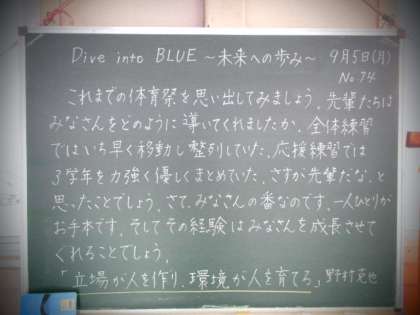 Dive into BLUE ～未来への歩み～ 9月5日(月)
No.74
これまでの体育祭を思い出してみましょう。先輩たちは
みなさんをどのように導いてくれましたか。全体練習
ではいち早く移動し整列していた。応援練習では
3学年を力強く優しくまとめていた。さすが先輩だな。と
思ったことでしょう。さて、みなさんの番なのです。一人ひとりが
お手本です。そしてその経験はみなさんを成長させて
くれることでしょう。
「立場が人を作り、環境が人を育てる」野村克也